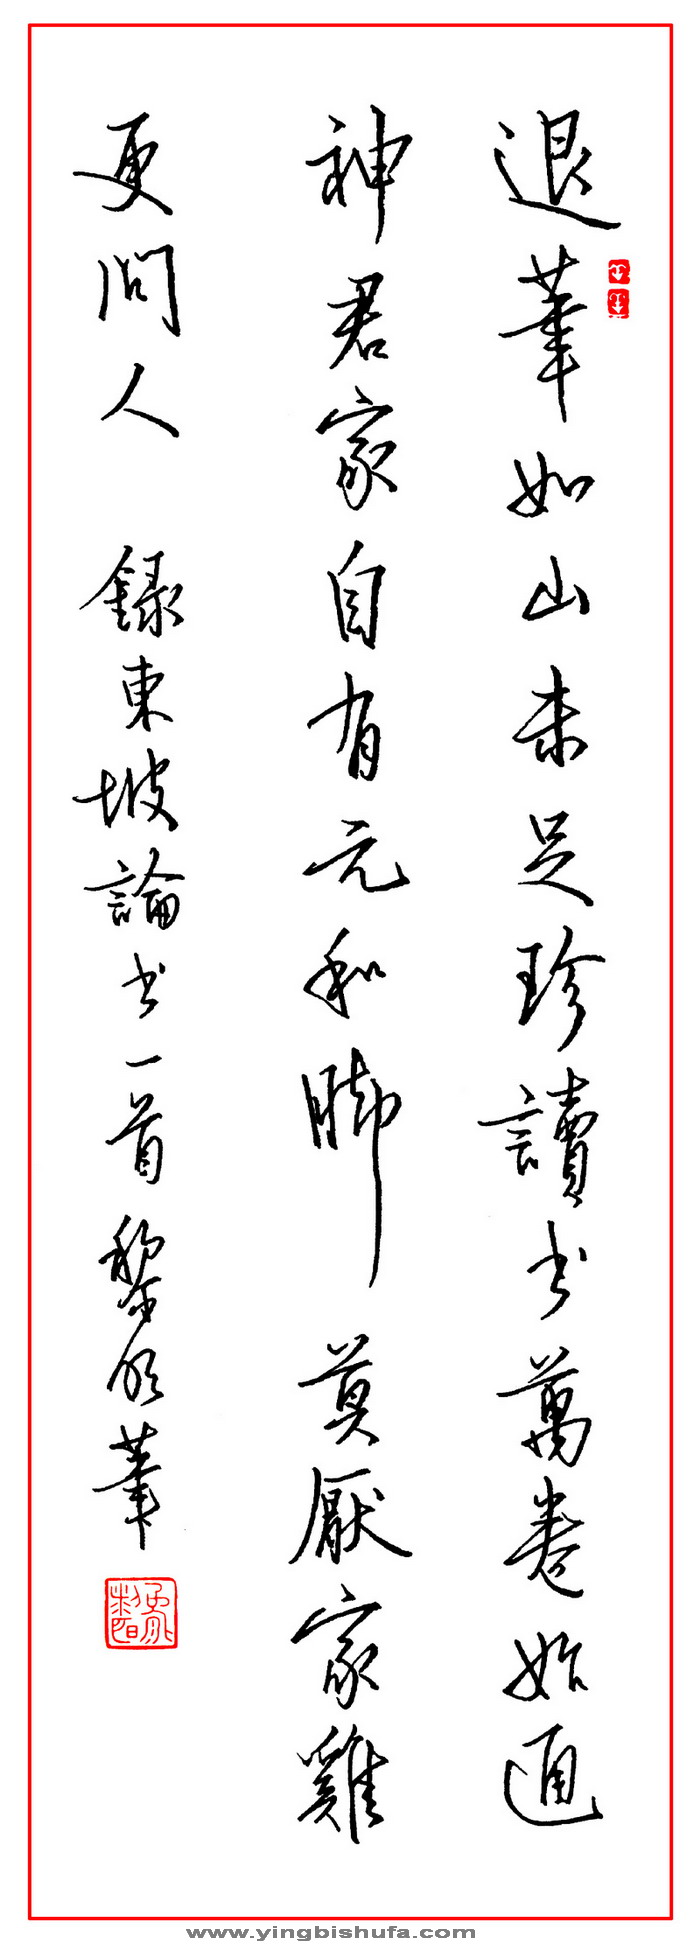 退筆如山未足珍讀书萬卷始通
神君家自有元和脚莫厭家雞
更問人 錄東坡論书一首 黎 筆
www.yingbishufa.com